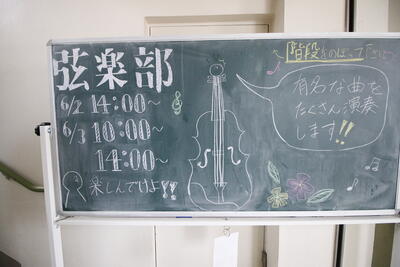 弦楽部
6/2 14:00〜
6/3 10:00〜
14:00〜
楽しんでけよ!!
階段をのぼって
有名な曲を
たくさん演奏
します!!